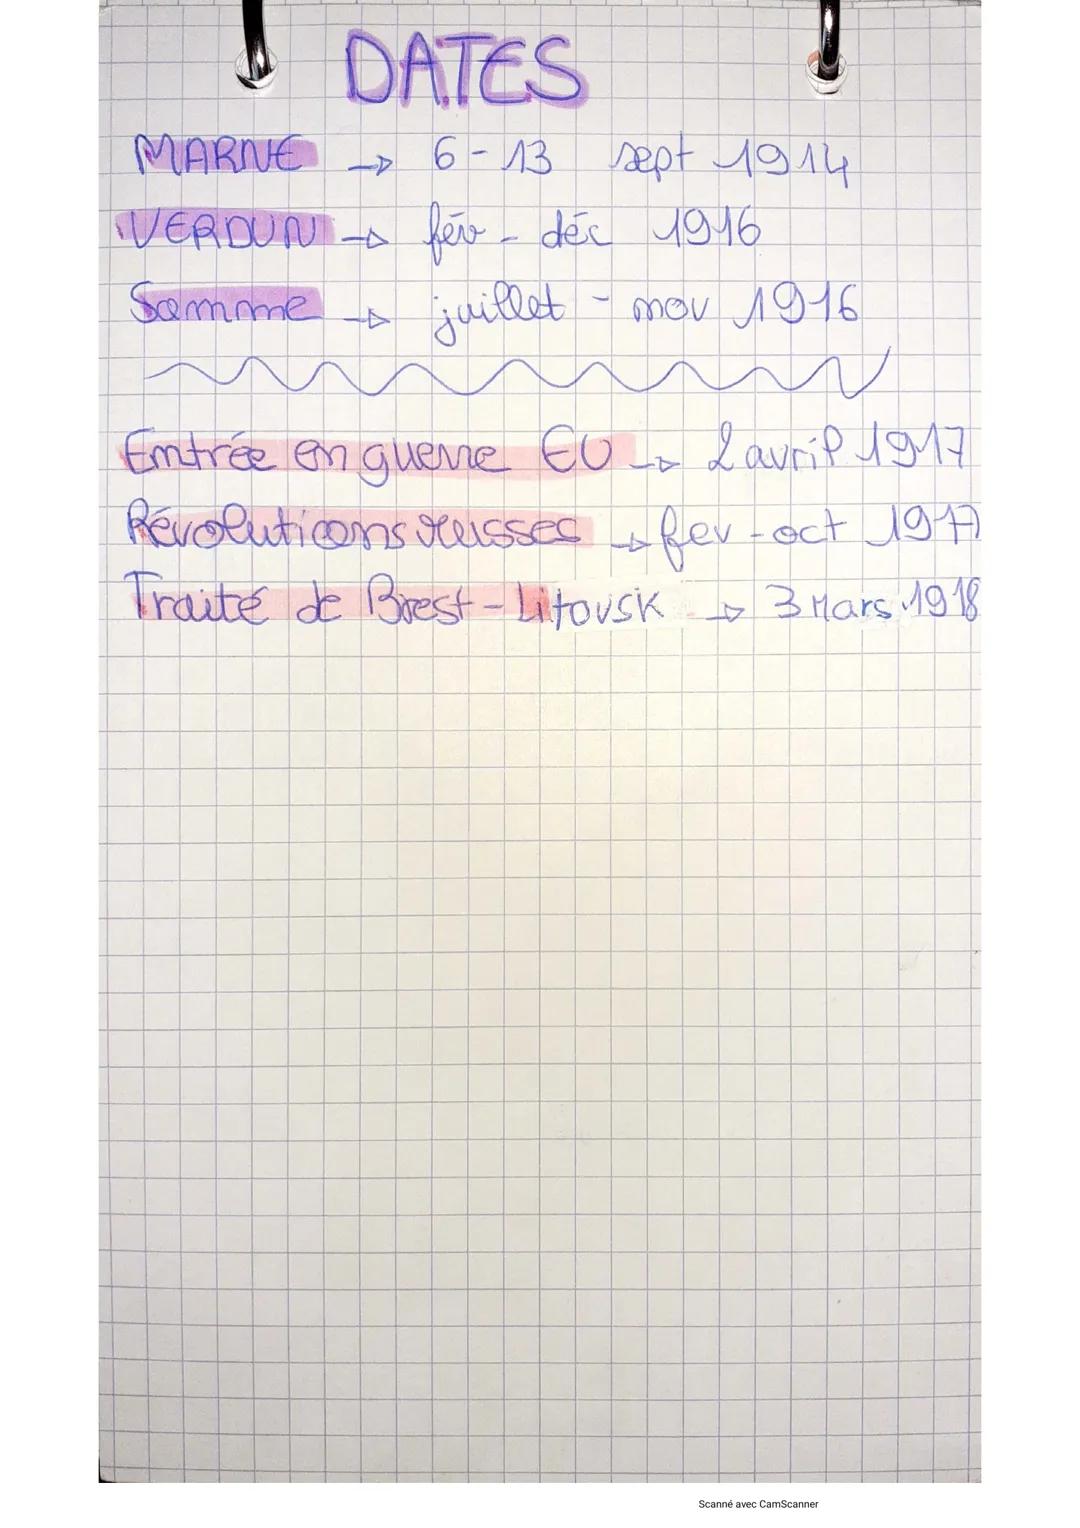 DATES
MARNE → 6-13 sept 1914
VERDUN → fév - déc 1916
Somme → juillet - nov 1916
Entrée en guerre EU → 2 avril 1917
Révolutions russes → fev - oct 1917
Traité de Brest-Litovsk → 3 Mars 1918
Scanné avec CamScanner